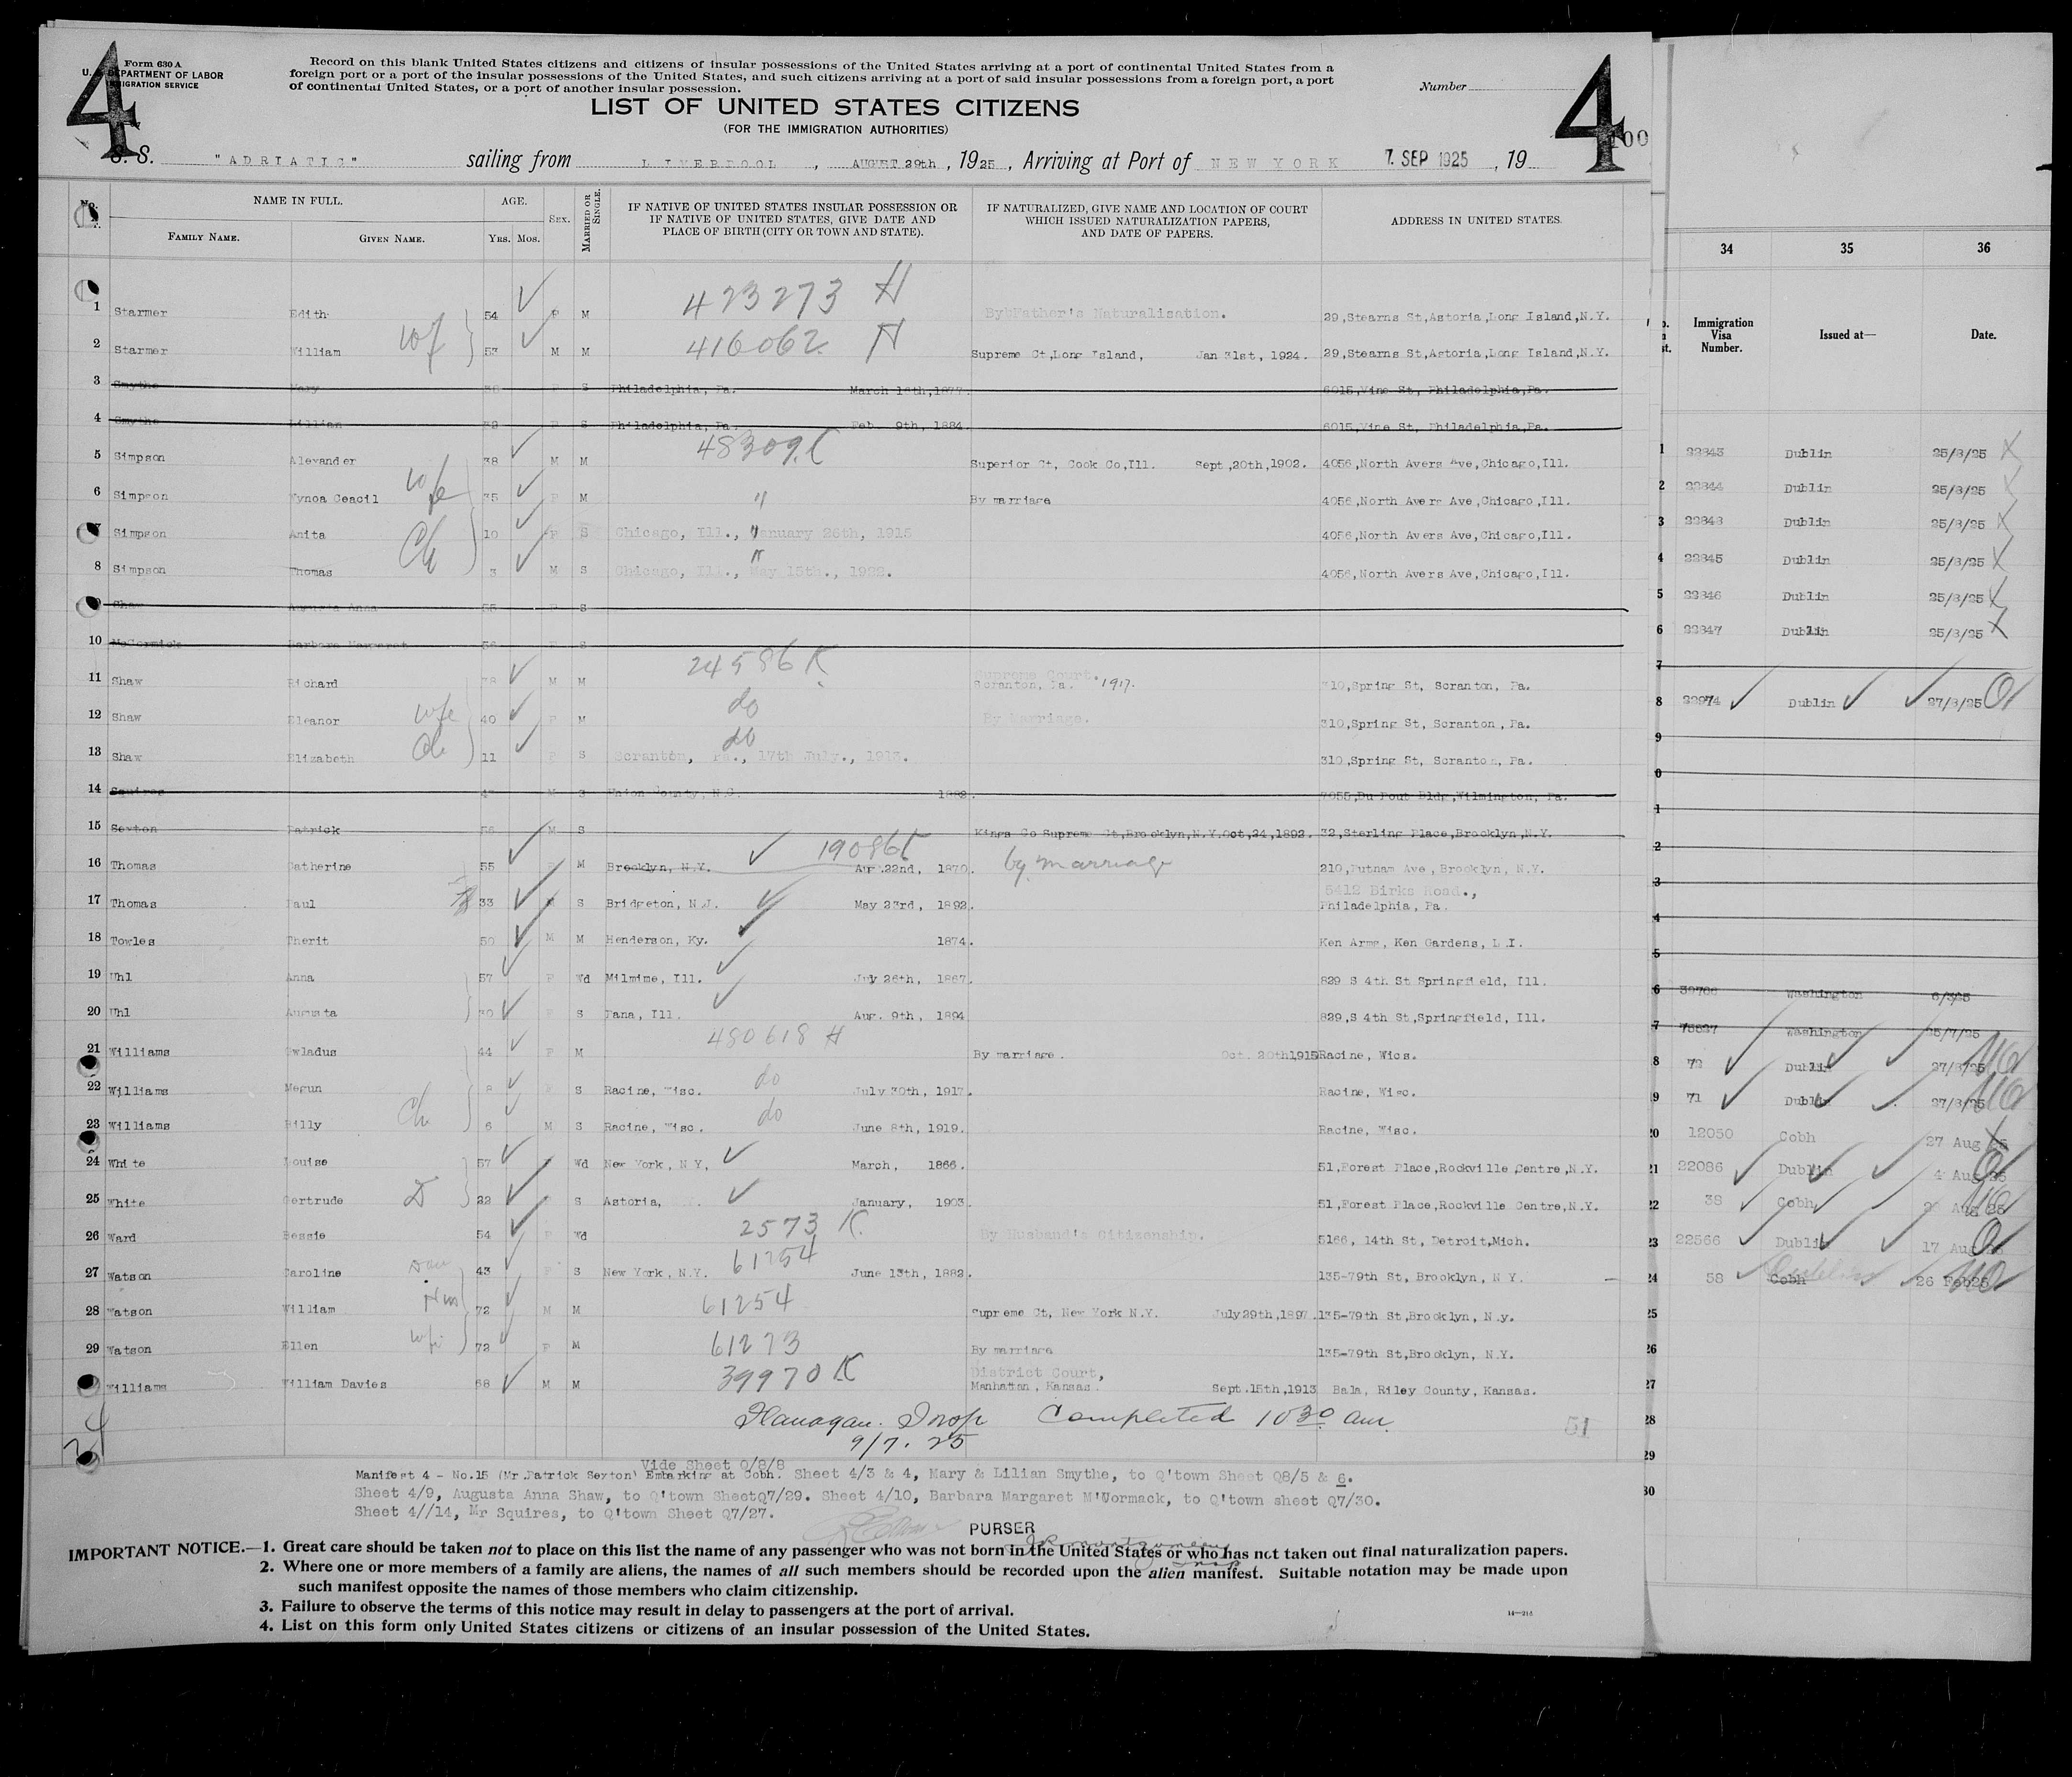 4
Form 630 A
U. S. DEPARTMENT OF LABOR
IMMIGRATION SERVICE
Record on this blank United States citizens and citizens of insular possessions of the United States arriving at a port of continental United States from a
foreign port or a port of the insular possessions of the United States, and such citizens arriving at a port of said insular possessions from a foreign port, a port
of continental United States, or a port of another insular possession.
Number
4
100
LIST OF UNITED STATES CITIZENS
(FOR THE IMMIGRATION AUTHORITIES)
S. S. "ADRIATIC" sailing from LIVERPOOL, AUGUST 29th, 1925, Arriving at Port of NEW YORK 7. SEP 1925, 19
No. NAME IN FULL. AGE. SEX. MARRIED OR SINGLE. IF NATIVE OF UNITED STATES INSULAR POSSESSION OR IF NATIVE OF UNITED STATES, GIVE DATE AND PLACE OF BIRTH (CITY OR TOWN AND STATE). IF NATURALIZED, GIVE NAME AND LOCATION OF COURT WHICH ISSUED NATURALIZATION PAPERS, AND DATE OF PAPERS. ADDRESS IN UNITED STATES.
FAMILY NAME. GIVEN NAME. YRS. MOS.
1 Starmer Edith 54 F M 423273 H By Father's Naturalisation. 29,Stearns St,Astoria,Long Island,N.Y.
2 Starmer William wf 53 M M 416062 H Supreme Ct,Long Island, Jan 31st, 1924. 29,Stearns St,Astoria,Long Island,N.Y.
3 Smythe Mary F S Philadelphia, Pa. March 18th,1877. 6015,Vine St, Philadelphia,Pa.
4 Smythe Lillian F S Philadelphia, Pa. Feb. 9th, 1884. 6015,Vine St, Philadelphia,Pa.
5 Simpson Alexander 38 M M 48309 Superior Ct, Cook Co,Ill. Sept,20th,1902. 4056,North Avers Ave,Chicago,Ill.
6 Simpson Wynoa Ceacil wfe 35 F M " By marriage 4056,North Avers Ave,Chicago,Ill.
7 Simpson Anita Ch 10 F S Chicago, Ill., January 26th, 1915 " 4056,North Avers Ave,Chicago,Ill.
8 Simpson Thomas 3 M S Chicago, Ill., May 15th., 1922. " 4056,North Avers Ave,Chicago,Ill.
9 Shaw Augusta Anna 55 F S
10 McCormick Barbara Margaret 56 F S
11 Shaw Richard 38 M M 24586 K Supreme Court. Scranton, Pa. 1917. 310,Spring St, Scranton, Pa.
12 Shaw Eleanor wfe 40 F M do By Marriage. 310,Spring St, Scranton, Pa.
13 Shaw Elizabeth Ch 11 F S do Scranton, Pa., 17th July., 1913. 310,Spring St, Scranton, Pa.
14 Squires M S Union County, N.C. 1882. 7055,Du Pout Bldg,Wilmington, Pa.
15 Sexton Patrick 56 M S Kings Co Supreme Ct,Brooklyn,N.Y.Oct,24,1892. 32,Sterling Place,Brooklyn,N.Y.
16 Thomas Catherine 55 F M Brooklyn, N.Y. 19086 Aug 22nd, 1870. by marriage 210,Putnam Ave, Brooklyn, N.Y.
17 Thomas Paul 33 M S Bridgeton, N.J. May 23rd, 1892. 5412 Dirks Road., Philadelphia, Pa.
18 Towles Therit 50 M M Henderson, Ky. 1874. Ken Arms, Ken Gardens, L.I.
19 Uhl Anna 57 F Wd Milmime, Ill. July 26th, 1867. 829 S 4th St Springfield, Ill.
20 Uhl Augusta 30 F S Tana, Ill. Aug. 9th, 1894 829,S 4th St,Springfield, Ill.
21 Williams Gwladus 44 F M 480618 H By marriage. Oct. 20th1915 Racine, Wics.
22 Williams Megun 8 F S Racine, Wisc. do July 30th, 1917. Racine, Wisc.
23 Williams Billy Ch 6 M S Racine, Wisc. do June 8th, 1919. Racine, Wisc.
24 White Louise 57 F Wd New York, N Y. March, 1866. 51,Forest Place,Rockville Centre,N.Y.
25 White Gertrude D 22 F S Astoria, January, 1903. 51,Forest Place,Rockville Centre,N.Y.
26 Ward Bessie 54 F Wd 2573 K By Husband's Citizenship. 5166, 14th St, Detroit,Mich.
27 Watson Caroline Dau 43 F S New York, N.Y. 61254 June 13th, 1882. 135-79th St, Brooklyn, N Y.
28 Watson William 72 M M 61254 Supreme Ct, New York N.Y. July29th,1897. 135-79th St,Brooklyn, N.y.
29 Watson Ellen 72 F M 61273 By marriage 135-79th St,Brooklyn, N.Y.
Williams William Davies 68 M M 39970 K District Court, Manhattan, Kansas. Sept.15th,1913 Bala, Riley County, Kansas.
Flanagan. Insp Completed 10 30 am.
9/7. 25
51
24
Vide Sheet Q/8/8
Manifest 4 - No.15 (Mr.Patrick Sexton) Embarking at Cobh. Sheet 4/3 & 4, Mary & Lilian Smythe, to Q'town Sheet Q8/5 & 6.
Sheet 4/9, Augusta Anna Shaw, to Q'town SheetQ7/29. Sheet 4/10, Barbara Margaret M'Cormack, to Q'town sheet Q7/30.
Sheet 4//14, Mr Squires, to Q'town Sheet Q7/27.
PURSER
IMPORTANT NOTICE.—1. Great care should be taken not to place on this list the name of any passenger who was not born in the United States or who has not taken out final naturalization papers.
2. Where one or more members of a family are aliens, the names of all such members should be recorded upon the alien manifest. Suitable notation may be made upon
such manifest opposite the names of those members who claim citizenship.
3. Failure to observe the terms of this notice may result in delay to passengers at the port of arrival.
4. List on this form only United States citizens or citizens of an insular possession of the United States.
34 35 36
Immigration Visa Number. Issued at— Date.
1 22843 Dublin 25/8/25
2 22844 Dublin 25/8/25
3 22848 Dublin 25/8/25
4 22845 Dublin 25/8/25
5 22846 Dublin 25/8/25
6 22847 Dublin 25/8/25
7
8 22974 Dublin 27/8/25
9
0
1
2
3
4
5
6 Washington
7 Washington 25/7/25
8 72 Dublin 27/8/25
9 71 Dublin 27/8/25
20 12050 Cobh 27 Aug 25
21 22086 Dublin 4 Aug 25
22 38 Cobh Aug 25
23 22566 Dublin 17 Aug
24 58 Cobh Dublin 26 Feb25
25
26
27
28
29
30